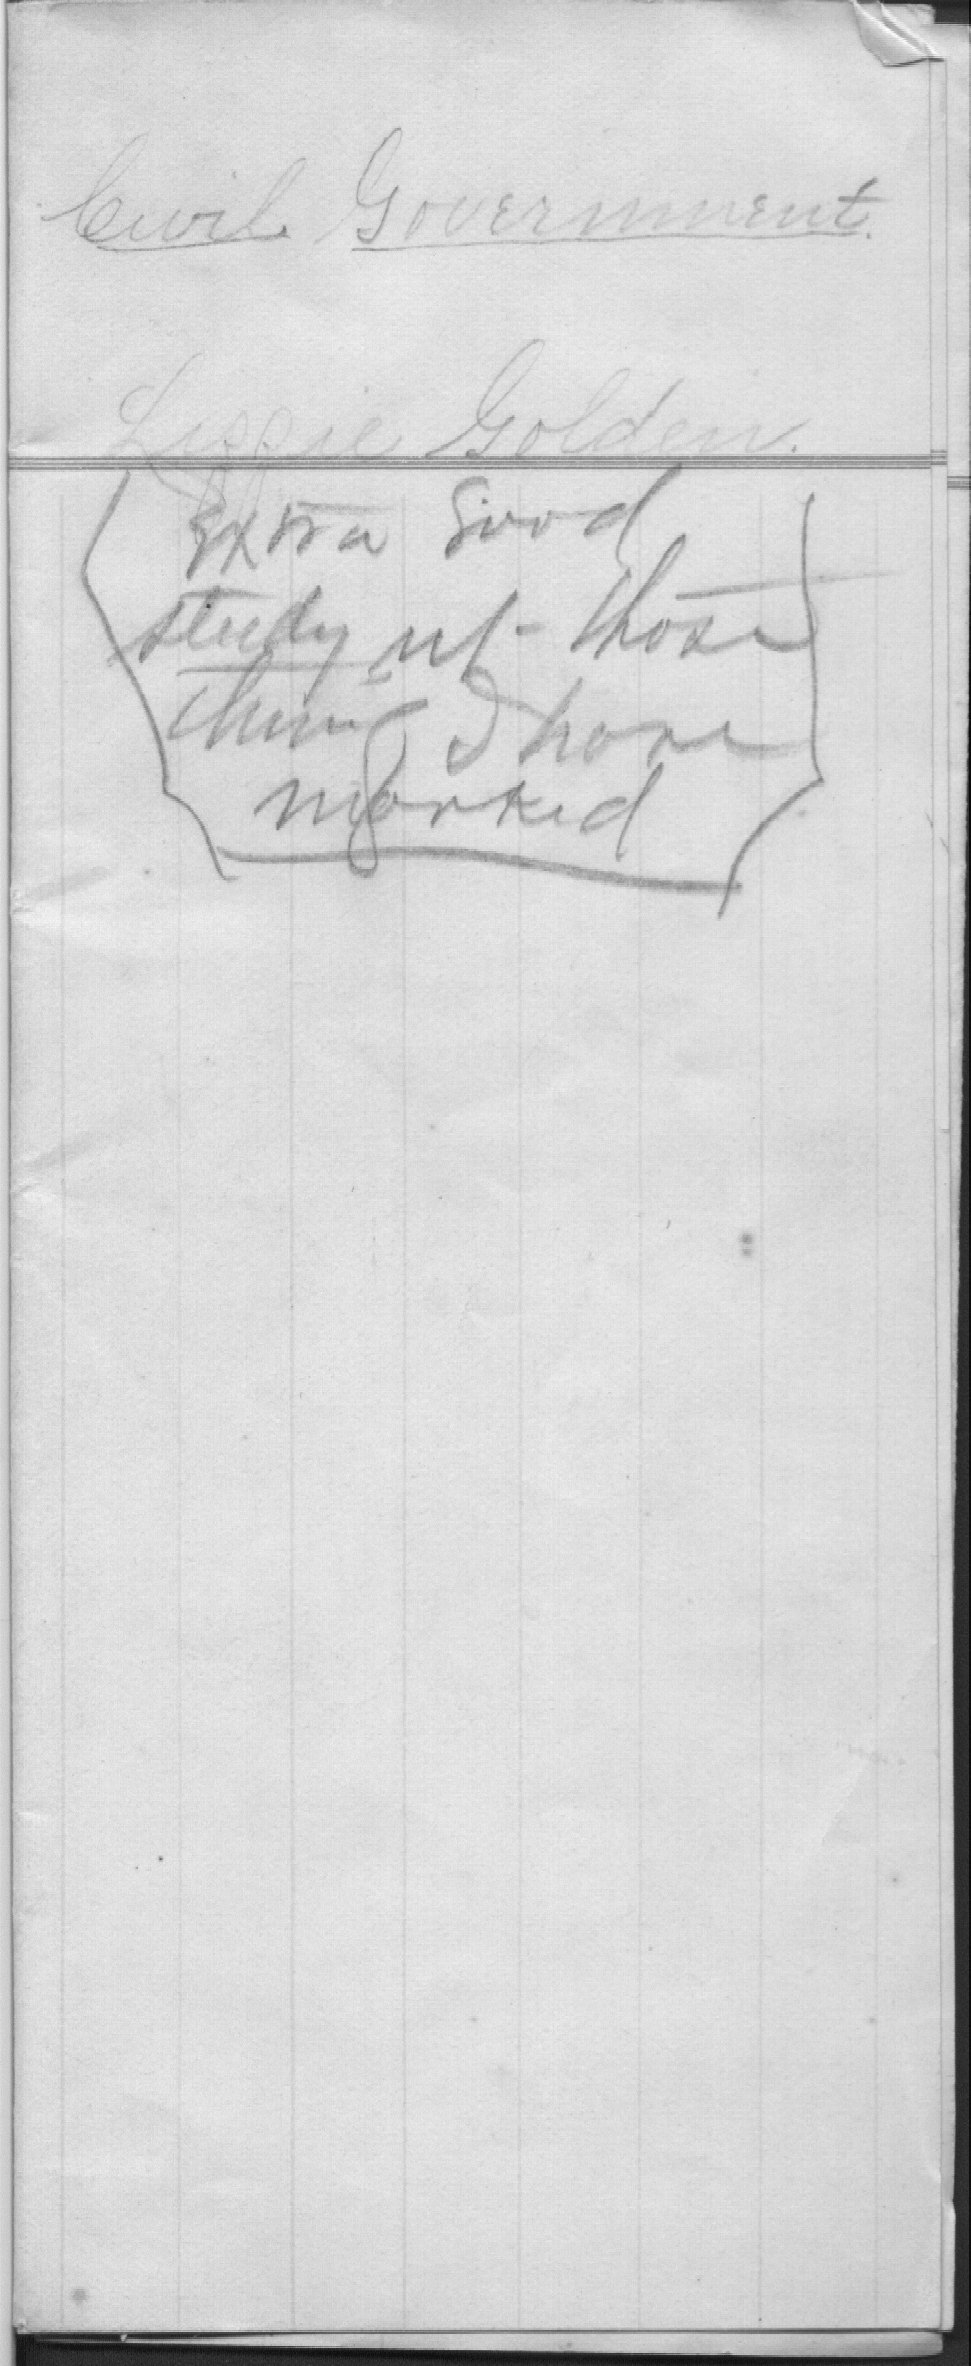 Civil Government.
Lizzie Golden.
Extra Good
study up those
things I have
marked